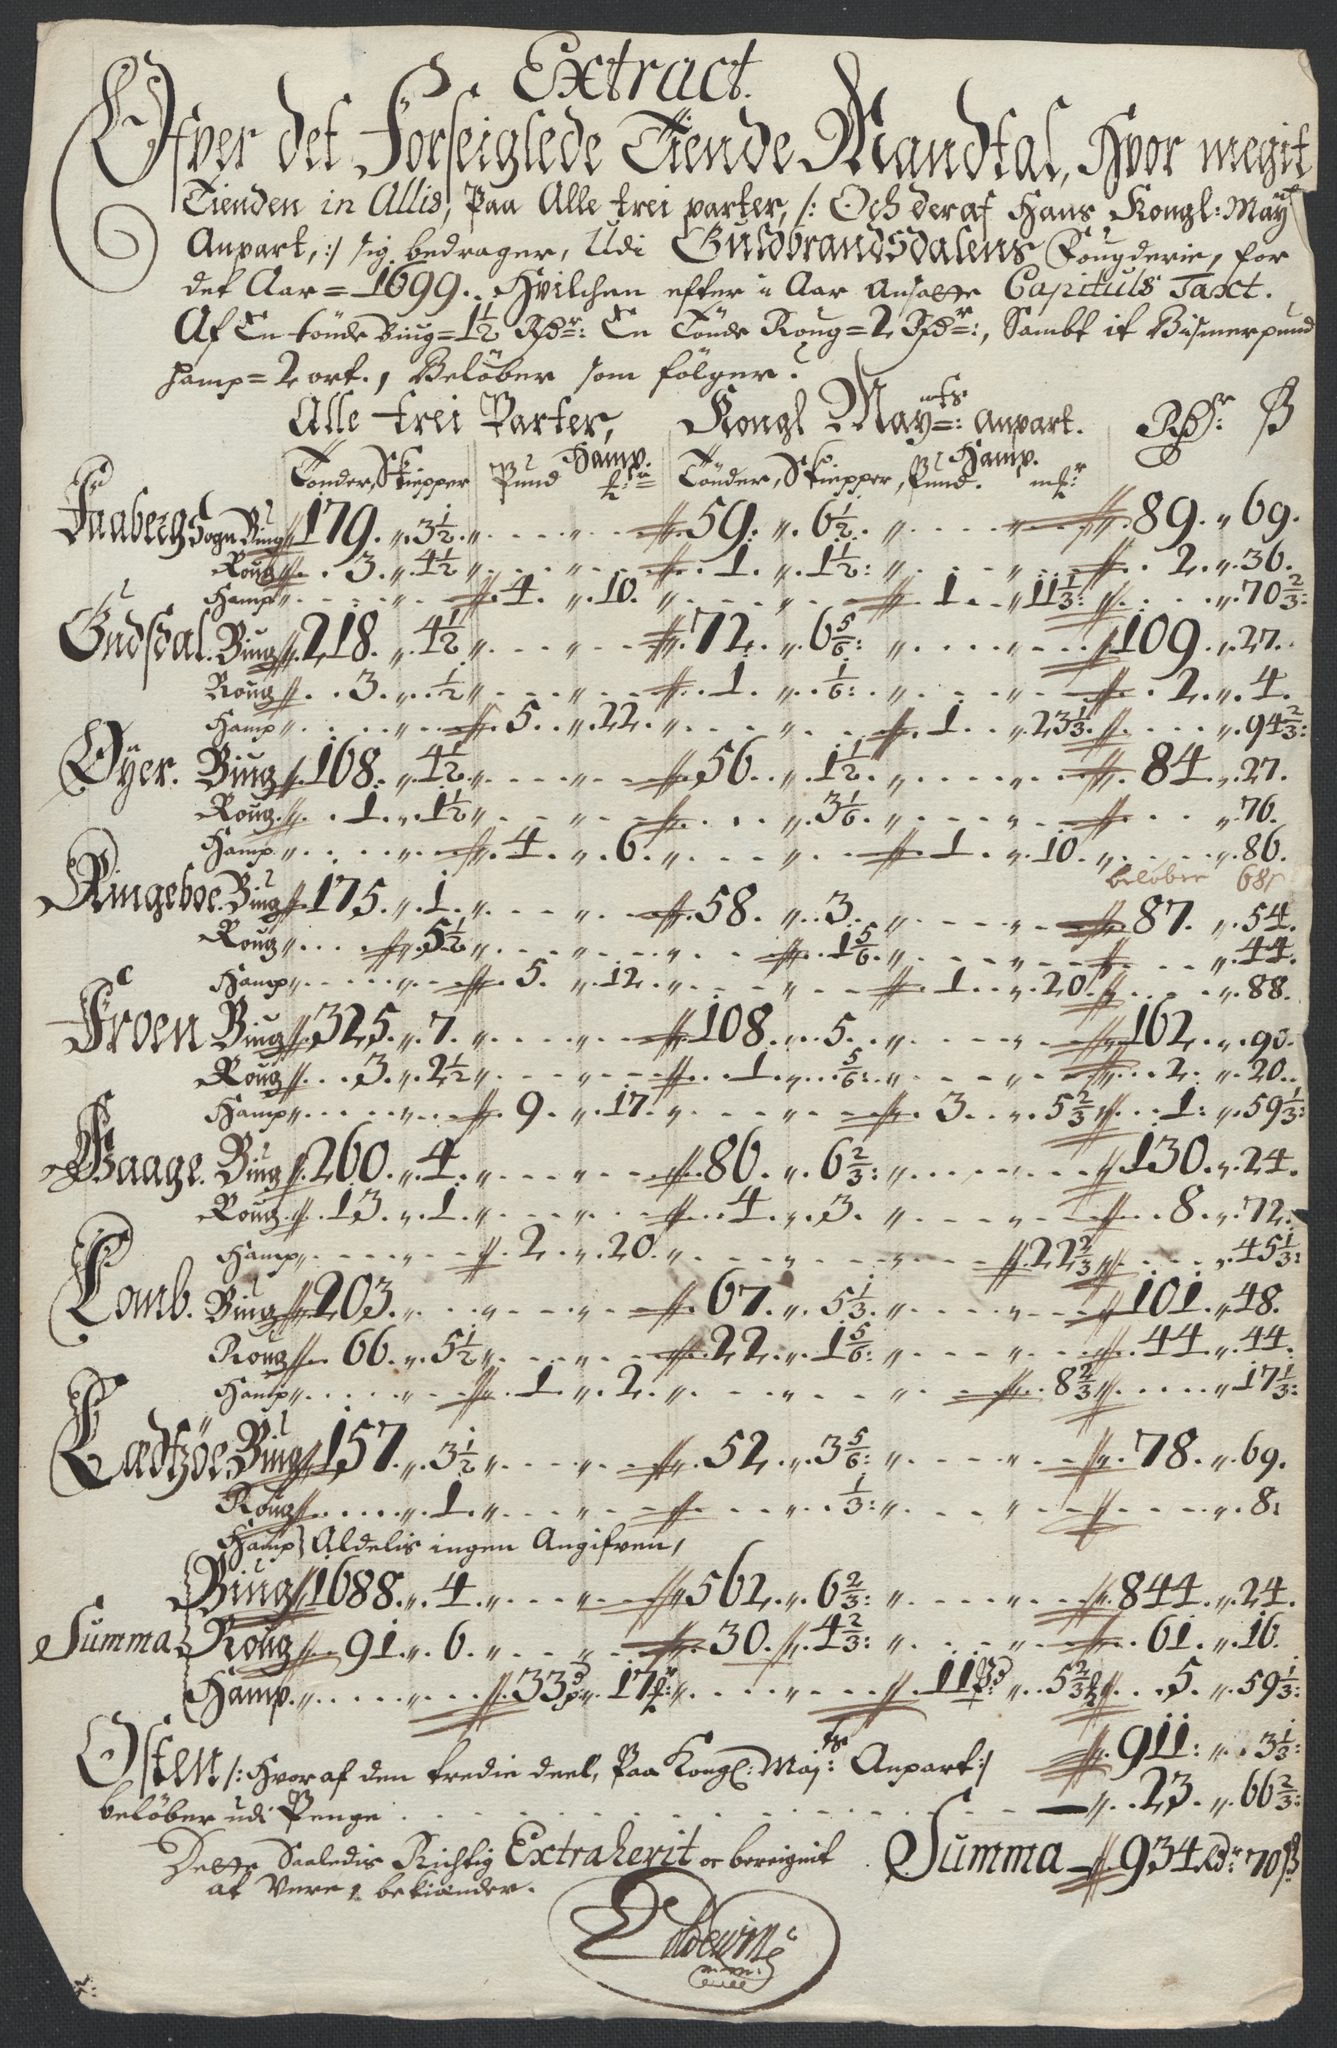 Extract.
Ofver det Forseiglede Tiende Mandtal, Hvor megit
Tienden in Allis, Paa Alle trei parter, /: Och deraf Hans Kongl: May:
Anpart, :/ sig bedrager, Udi Guldbrandsdalens Fougderie, for
det Aar = 1699. Hvilchen efter i Aar Ansatte Capituls Taxt.
Af En tönde Biug = 1½ Rdr: En Tönde Roug = 2 Rdr:, Sambt it Bismerpund
hamp = 2 ort., Beløber som følger.
Alle trei Parter, Kongl Mayts: Anpart. Rdr: ß
Tönder, Skiepper Pund Hamp. Tönder, Skiepper, Pund. Hamp. mkr:
Faaberg Sogn Biug 179. 3½ 59. 6½ 89. 69.
Roug 3. 4½ 1. 1½: 2. 36.
Hamp 4. 10. 1 11⅓: 70⅔:
Gudsdal. Biug 218. 4½ 72. 6⅚: 109. 27.
Roug 3. ½ 1. ⅙: 2. 4.
Hamp 5. 22. 1. 23⅓ 94⅔:
Öyer. Biug 168. 4½ 56. 1½ 84. 27.
Roug. 1. 1½ 3⅙ 76.
Hamp 4. 6. 1. 10. 86.
beløber
Ringeboe. Biug 175. 1. 58. 3. 87. 54.
Roug 5½ 1⅚ 44.
Hamp 5. 12. 1. 20. 88.
Froen Biug 325. 7. 108. 5. 162. 90.
Roug 3. 2½ 1. ⅚: 2. 20.
Hamp 9. 17. 3. 5⅔ 1: 59⅓:
Vaage. Biug 260. 4. 86. 6⅔: 130. 24.
Roug 13. 1. 4. 3. 8. 72.
Hamp 2. 20. 22⅔ 45⅓:
Lomb. Biug 203. 67. 5⅓. 101. 48.
Roug 66. 5½ 22. 1⅚: 44. 44.
Hamp 1. 2. 8⅔ 17⅓:
Lædsöe. Biug 157. 3½ 52. 3⅚: 78. 69.
Roug 1. ⅓: 8:
Hamp Aldelis ingen Angifven,
Biug 1688. 4. 562. 6⅔: 844. 24.
Summa Roug 91. 6. 30. 4⅔: 61. 16.
Hamp. 33pd 17 11Pd 5⅔ 5. 59⅓:
911: 3⅓:
Osten /: Hvoraf den tredie deel, Paa Kongl: Maj:ts Anpart :/
beløber udi Penge 23. 66⅔:
Dette Saaledis Richtig Extraherit oc beregnit
at Vere, bekiænder.
Summa 934 Rd: 70ß